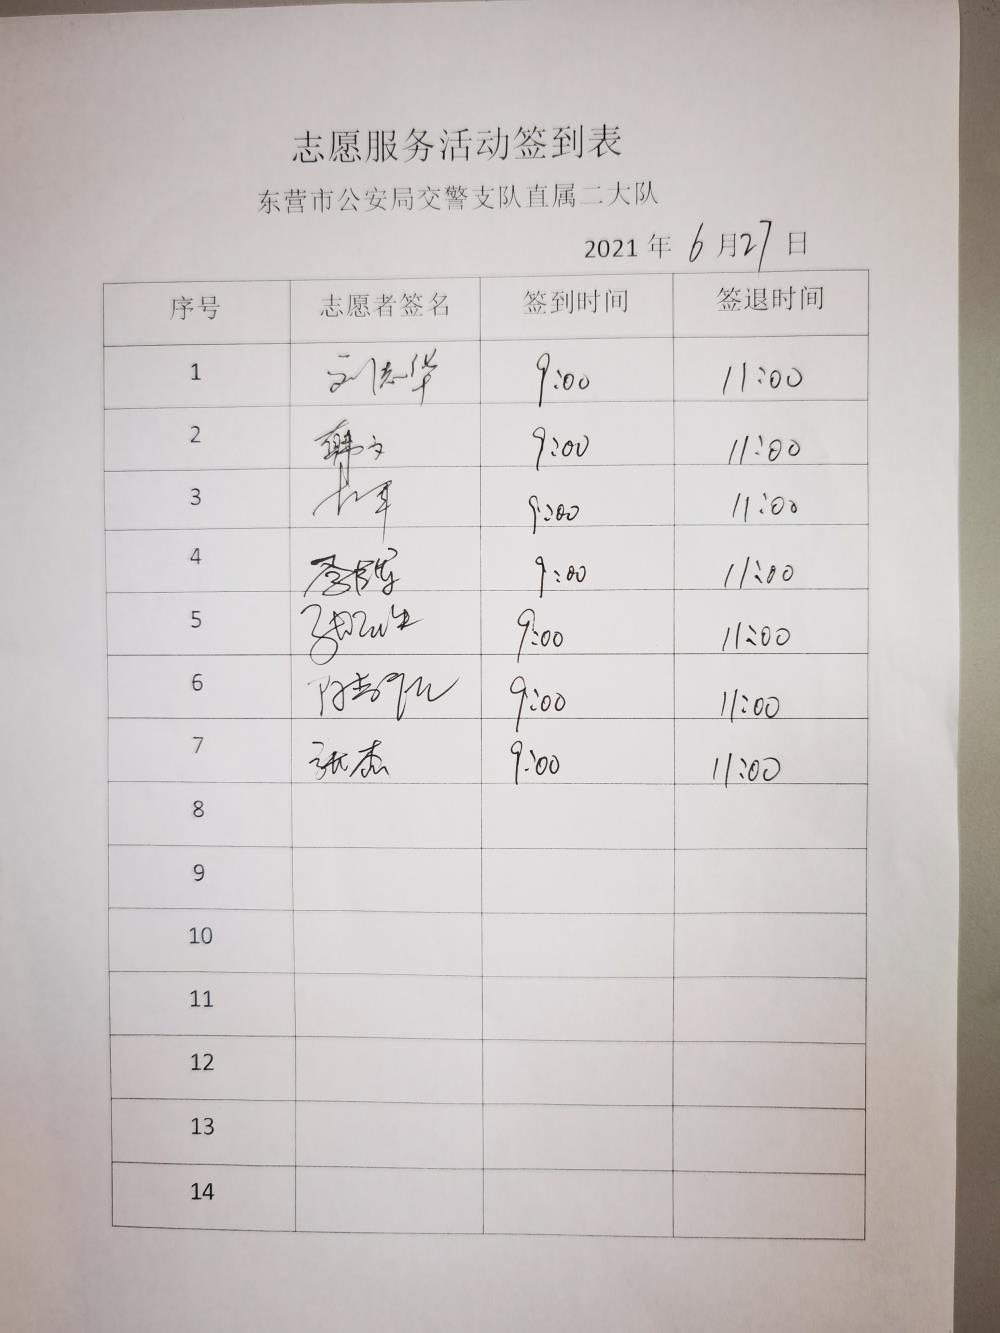 志愿服务活动签到表
东营市公安局交警支队直属二大队
2021 年 6 月 27 日
序号 志愿者签名 签到时间 签退时间
1 刘志华 9:00 11:00
2 韩文 9:00 11:00
3 9:00 11:00
4 9:00 11:00
5 9:00 11:00
6 9:00 11:00
7 张杰 9:00 11:00
8
9
10
11
12
13
14